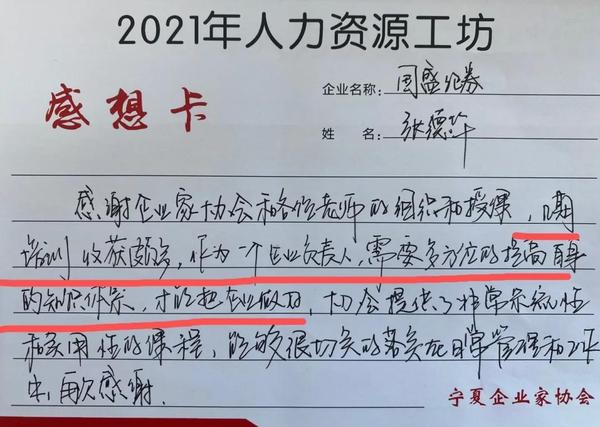 2021年人力资源工坊
感想卡
企业名称：国盛证券
姓 名：张德华
感谢企业家协会和各位老师的组织和授课，几期
培训收获颇多，作为一个企业负责人，需要多方位的提高自身
的知识体系，才能把企业做好，协会提供了非常系统性
和实用性的课程，能够很切实的落实在日常管理和工作
中，再次感谢.
宁夏企业家协会